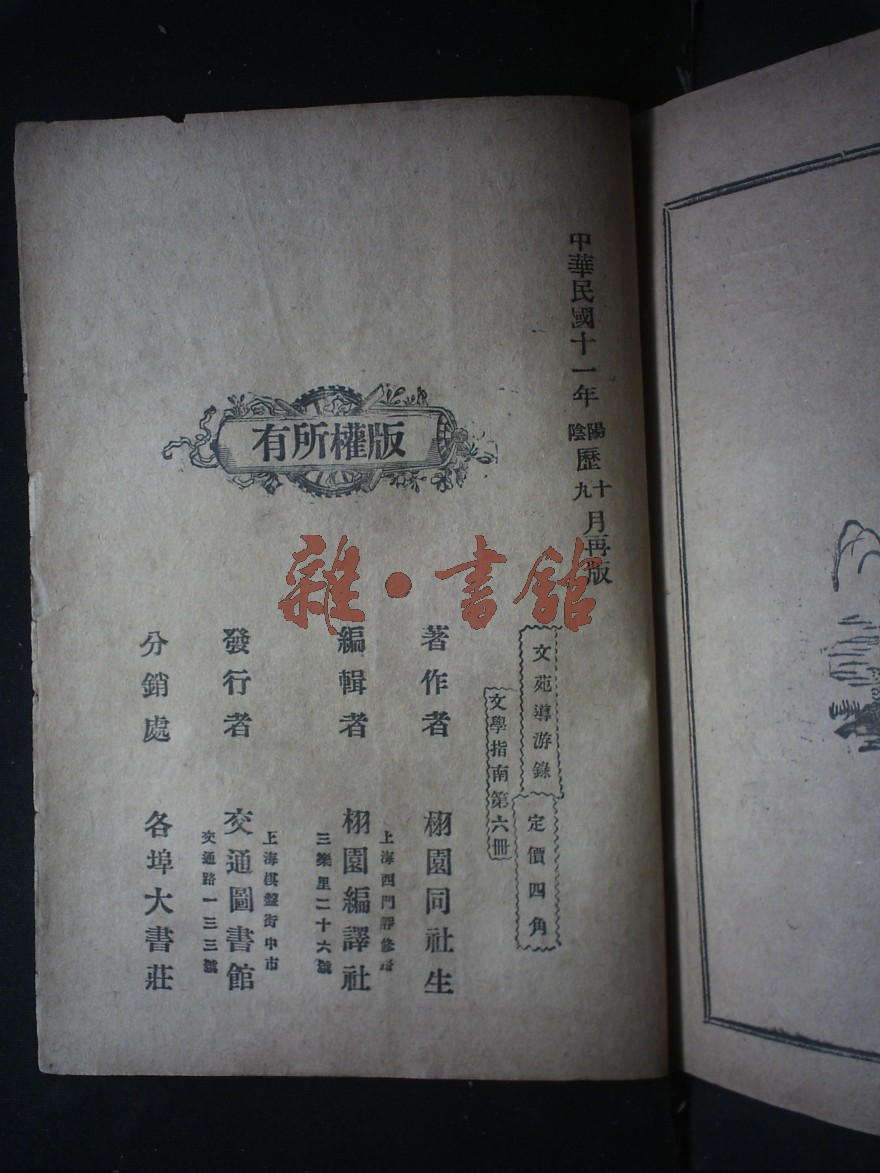 中華民國十一年陽陰歷十九月再版
版權所有
文苑導游錄
定價四角
文學指南第六冊
著作者 栩園同社生
上海西門靜修路
三樂里二十六號
編輯者 栩園編譯社
上海棋盤街中市
交通路一三三號
發行者 交通圖書館
分銷處 各埠大書莊
雜·書館